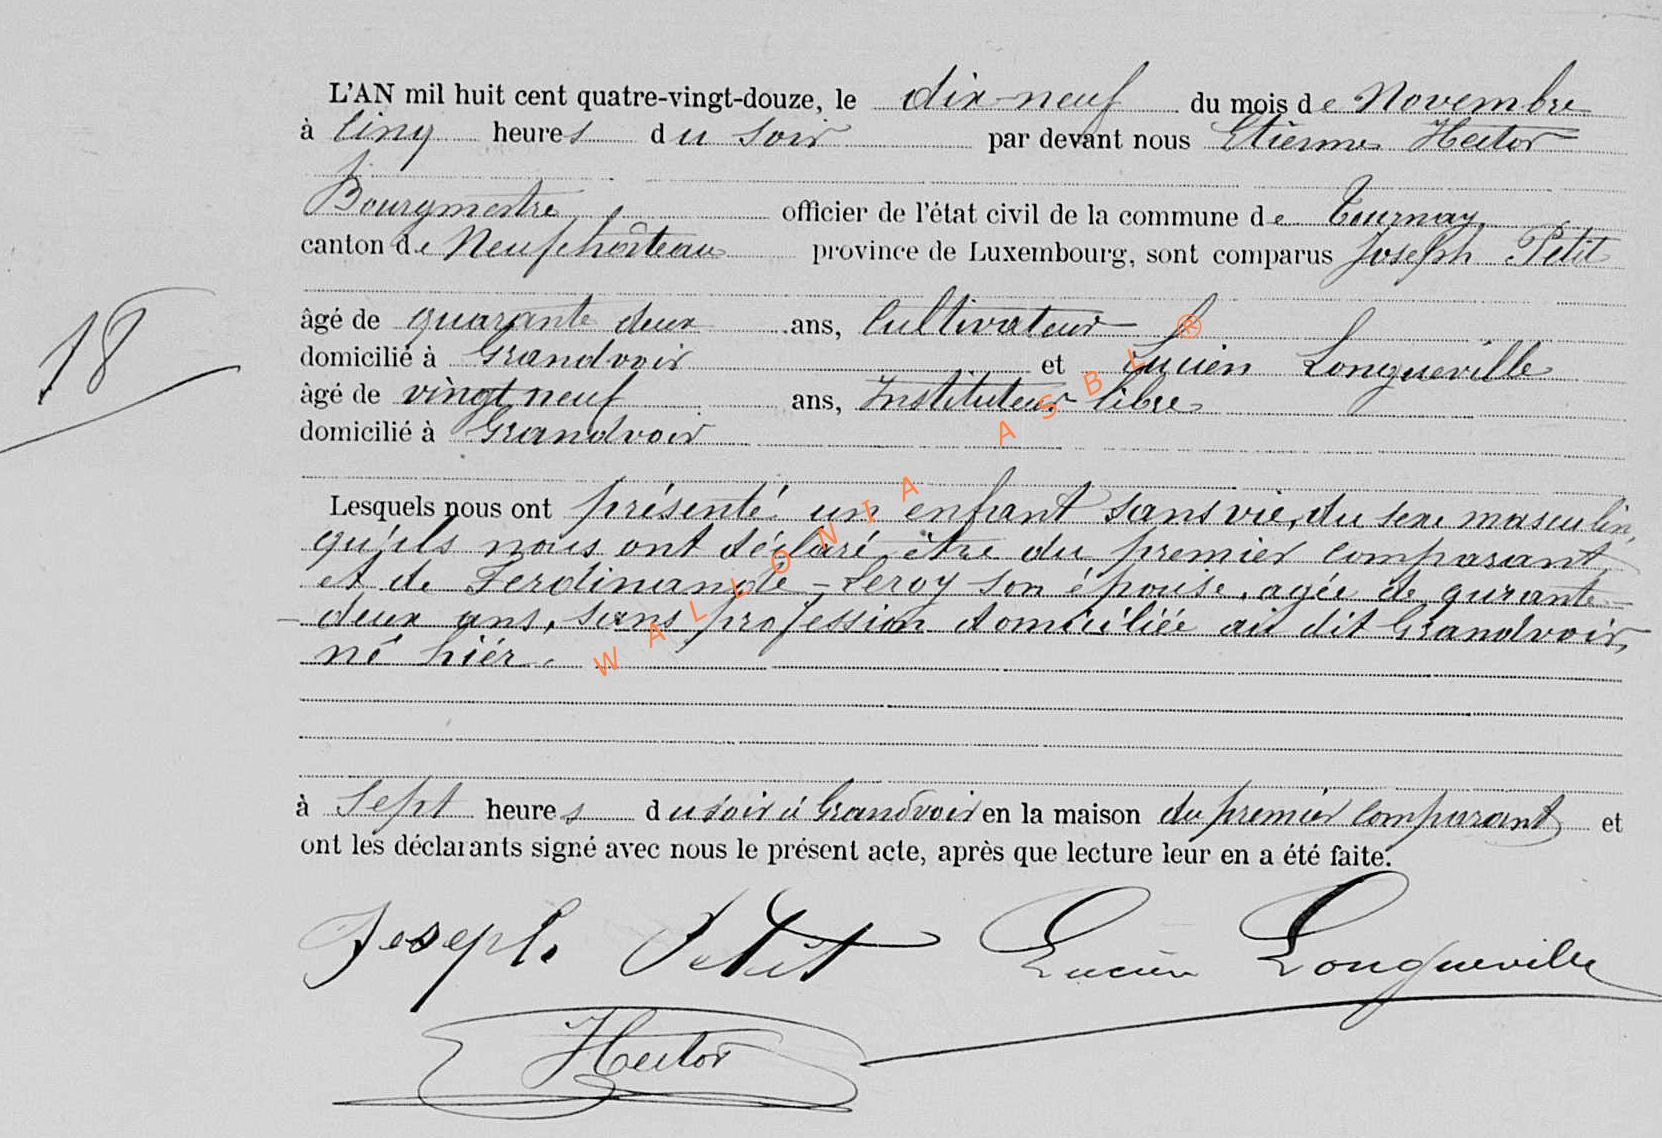 L'AN mil huit cent quatre-vingt-douze, le dix-neuf du mois de Novembre
à cinq heures du soir par devant nous Etienne Hector
Bourgmestre officier de l'état civil de la commune de Tournay,
canton de Neufchâteau province de Luxembourg, sont comparus Joseph Petit
18
âgé de quarante deux ans, Cultivateur
domicilié à Grandvoir et Lucien Longueville
âgé de vingt neuf ans, Instituteur libre
domicilié à Grandvoir
Lesquels nous ont présenté un enfant sans vie, du sexe masculin,
qu'ils nous ont déclaré être du premier comparant,
et de Ferdinande Leroy son épouse, agée de qurante-
deux ans, sans profession domiciliée au dit Grandvoir,
né hier.
à Sept heures du soir à Grandvoir en la maison du premier comparant et
ont les déclarants signé avec nous le présent acte, après que lecture leur en a été faite.
Joseph Petit Lucien Longueville
Hector
WALLONIA ASBL ®